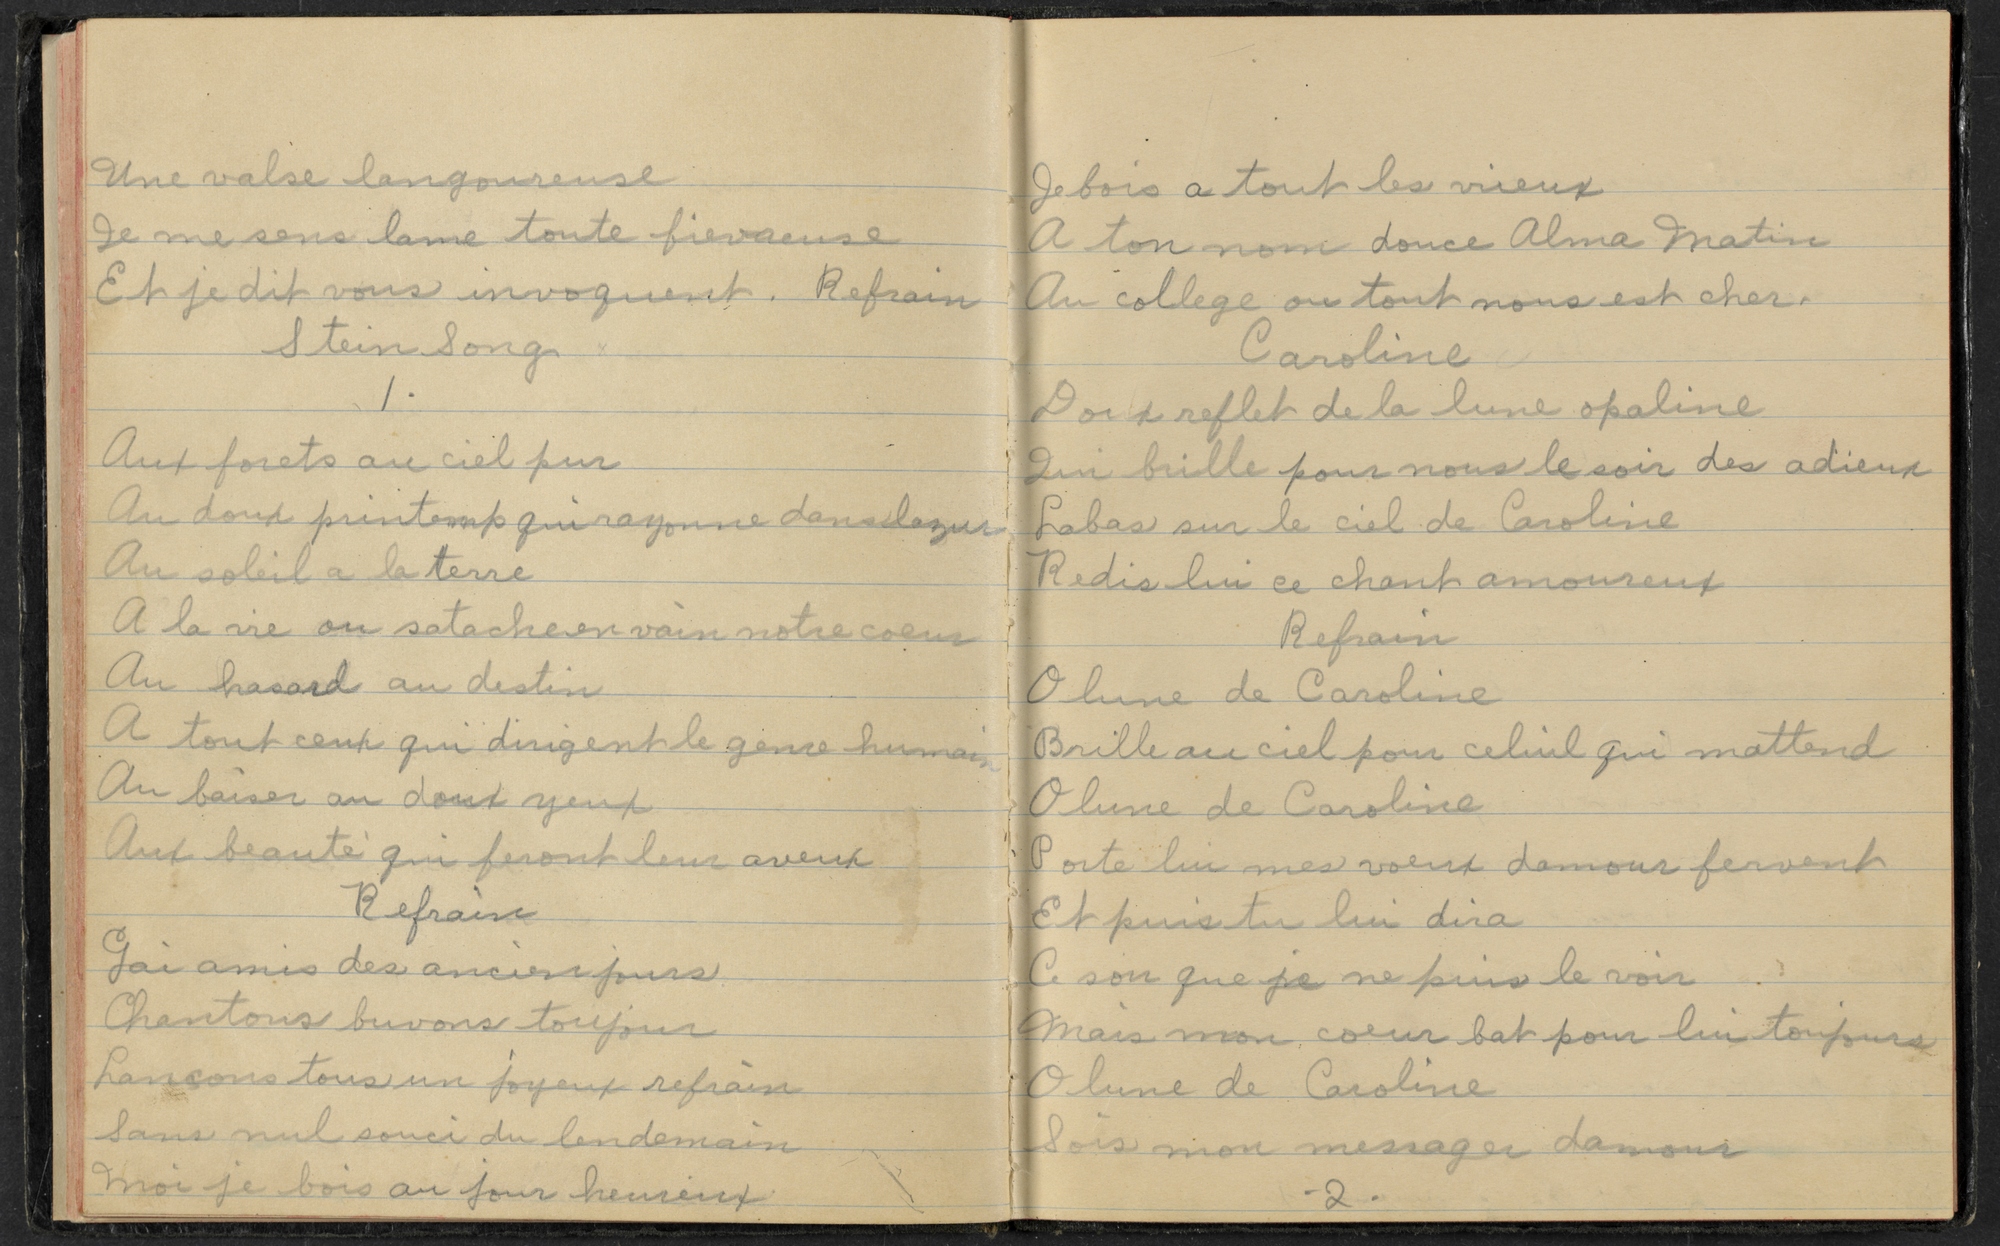 Une valse langoureuse
Je me sens lame toute fievreuse
Et je dit vous invoquent. Refrain
Stein Song
1.
Aux forets au ciel pur
Au doux printemp qui rayonne dans lazur
Au soleil a la terre
A la vie ou satache en vain notre coeur
Au hasard au destin
A tout ceux qui dirigent le genre humain
Au baiser au doux yeux
Aux beauté qui feront leur aveux
Refrain
Gai amis des ancien jours
Chantons buvons toujour
Lancons tous un joyeux refrain
Sans nul souci du lendemain
Moi je bois au jour heureux
Je bois a tout les vieux
A ton nom douce Alma Matin
Au college ou tout nous est cher.
Caroline
Doux reflet de la lune opaline
Qui brille pour nous le soir des adieux
Labas sur le ciel de Caroline
Redis lui ce chant amoureux
Refrain
O lune de Caroline
Brille au ciel pour celuil qui mattend
O lune de Caroline
Porte lui mes voeux damour fervent
Et puis tu lui dira
Ce soir que je ne puis le voir
Mais mon coeur bat pour lui toujours
O lune de Caroline
Sois mon messager damour
-2.